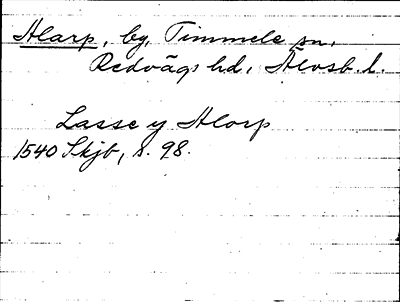 Alarp, by, Timmele sn,
Redvägs hd, Älvsb. l.
Lasse y Alorp
1540 Skjb, s. 98.